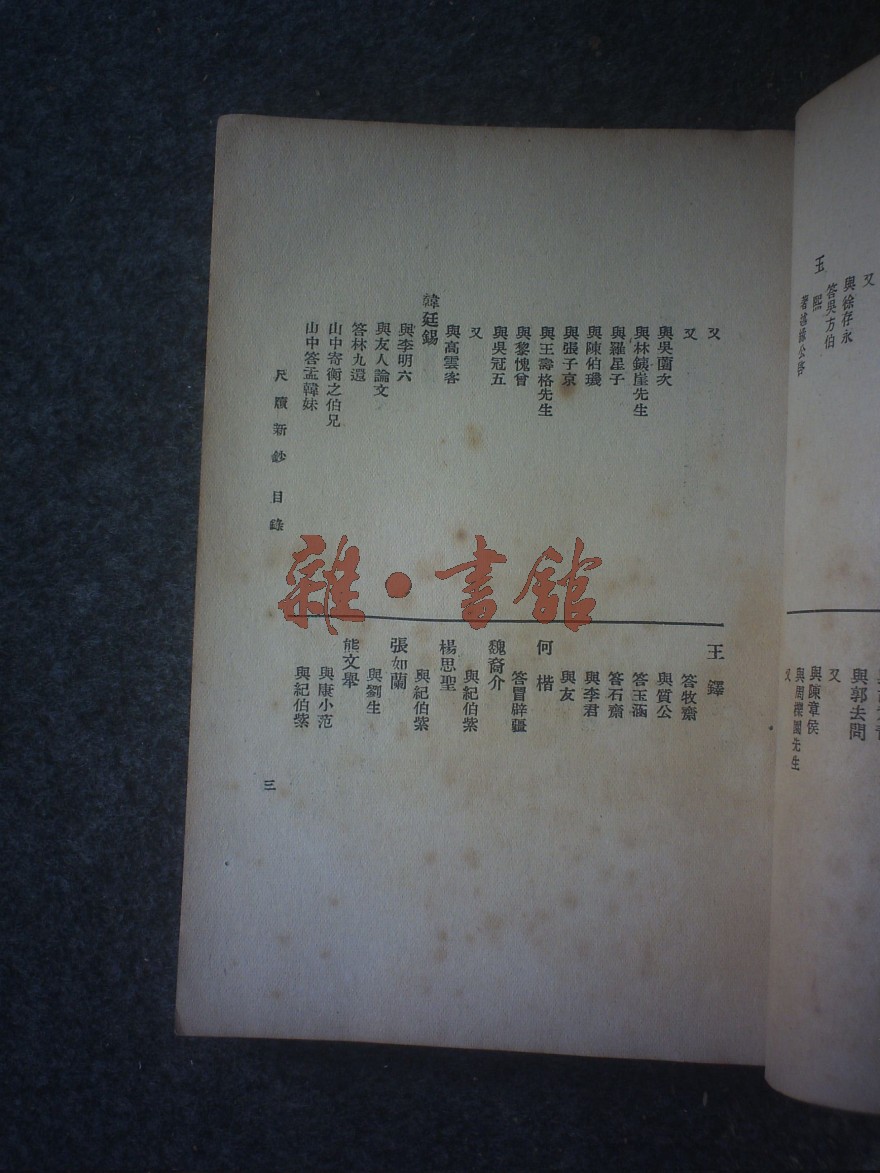 又
與徐存永
答吳方伯
王熙
與郭去問
又
與陳章侯
與周櫟園先生
又
又
又
與吳園次
與林鐵崖先生
與羅星子
與陳伯璣
與張子京
與王壽格先生
與黎愧曾
與吳冠五
又
與高雲客
韓廷錫
與李明六
與友人論文
答林九還
山中寄衡之伯兄
山中答孟韓妹
王鐸
答牧齋
與質公
答玉涵
答石齋
與李君
與友
何楷
答冒辟疆
魏裔介
與紀伯紫
楊思聖
與紀伯紫
張如蘭
與劉生
熊文舉
與康小范
與紀伯紫
尺牘新鈔 目錄
三
雜·書館